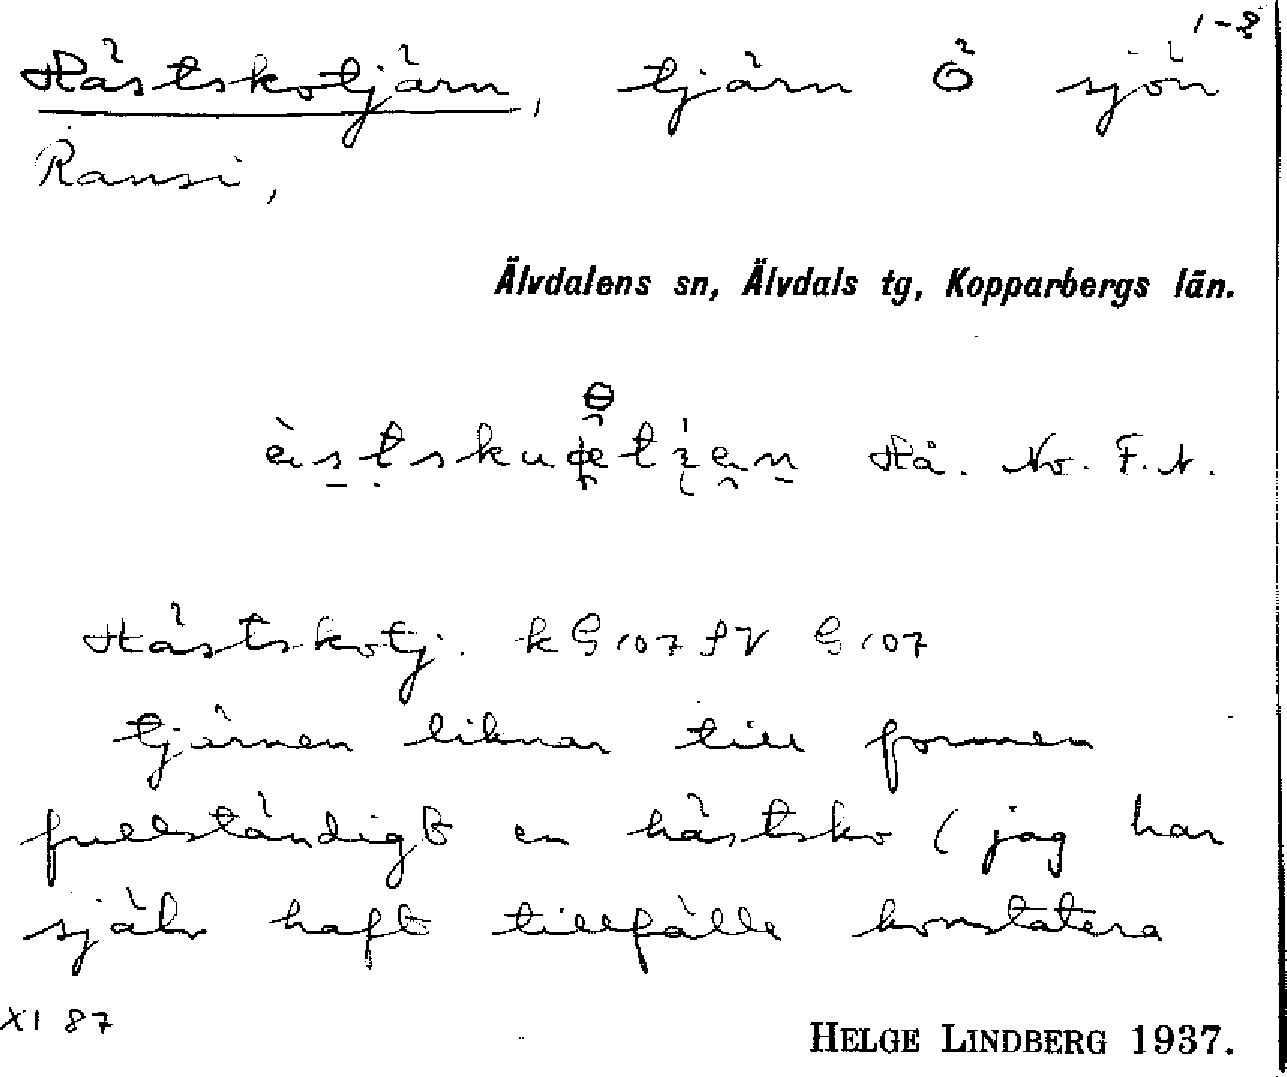 1-2
Hästskotjärn, tjärn Ö sjön
Ransi,
Älvdalens sn, Älvdals tg, Kopparbergs län.
Hå. No. F.A.
Hästskotj. k G 107 SV G 107
tjärnen liknar till formen
fullständigt en hästsko (jag har
själv haft tillfälle konstatera
XI 87
HELGE LINDBERG 1937.